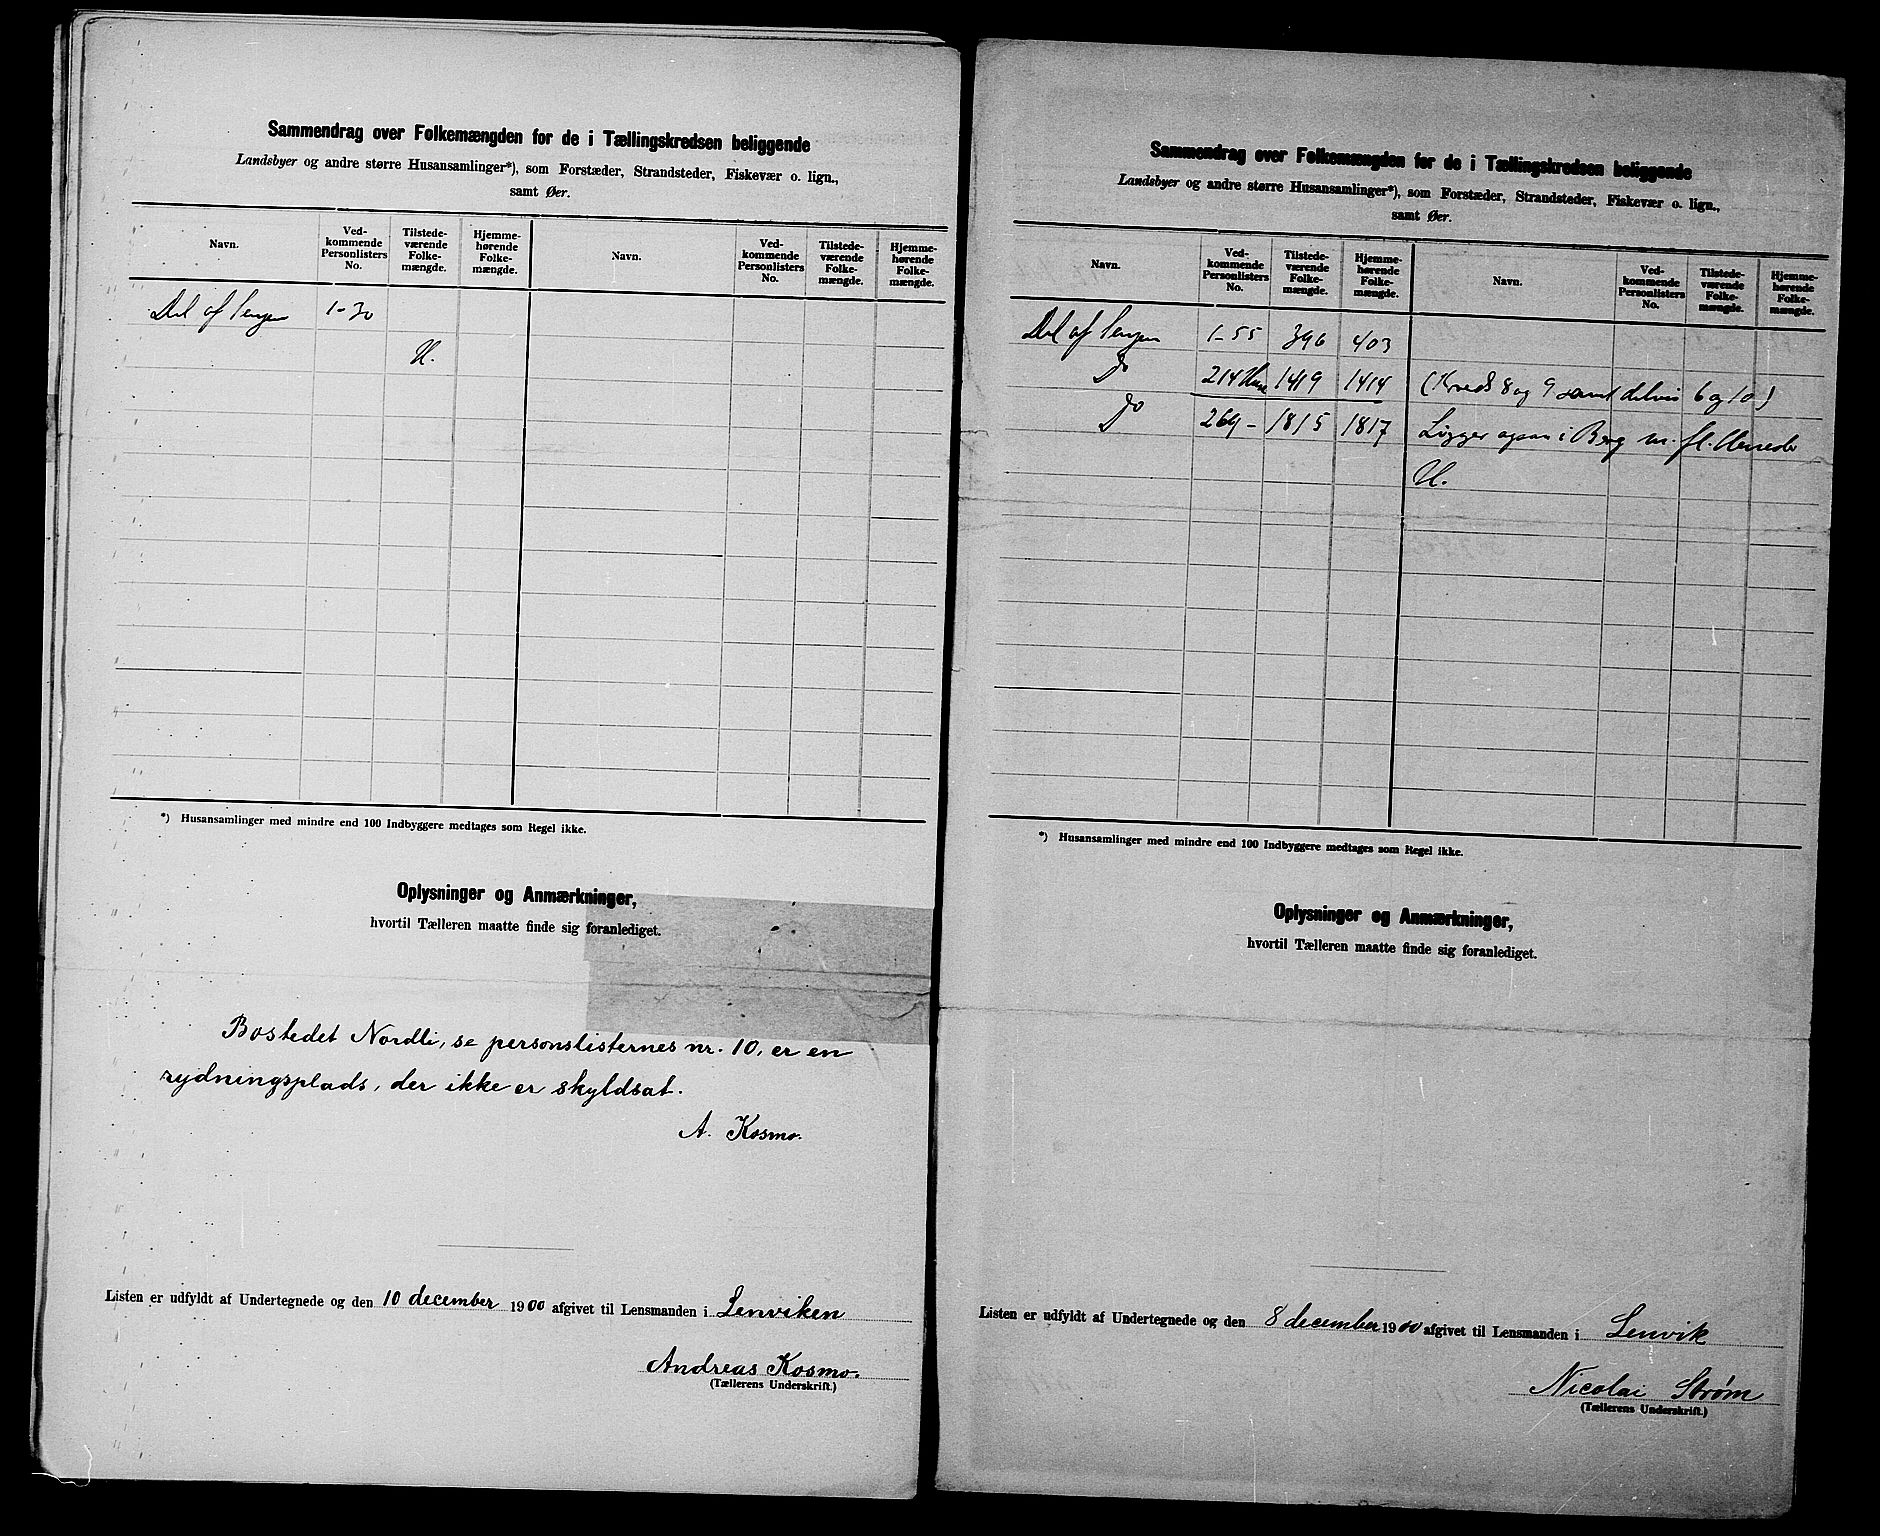 Sammendrag over Folkemængden for de i Tællingskredsen beliggende
Landsbyer og andre større Husansamlinger*), som Forstæder, Strandsteder, Fiskevær o. lign.,
samt Øer.
Navn. Ved-kommende Personlisters No. Tilstede-værende Folke-mængde. Hjemme-hørende Folke-mængde. Navn. Ved-kommende Personlisters No. Tilstede-værende Folke-mængde. Hjemme-hørende Folke-mængde.
Del af Senjen 1-30
U.
*) Husansamlinger med mindre end 100 Indbyggere medtages som Regel ikke.
Oplysninger og Anmærkninger,
hvortil Tælleren maatte finde sig foranlediget.
Bostedet Nordli, se personslisternes nr. 10, er en
rydningsplads, der ikke er skyldsat.
A. Kosmo.
Listen er udfyldt af Undertegnede og den 10 december 1900 afgivet til Lensmanden i Lenviken
Andreas Kosmo.
(Tællerens Underskrift.)
Sammendrag over Folkemængden for de i Tællingskredsen beliggende
Landsbyer og andre større Husansamlinger*), som Forstæder, Strandsteder, Fiskevær o. lign.,
samt Øer.
Navn. Ved-kommende Personlisters No. Tilstede-værende Folke-mængde. Hjemme-hørende Folke-mængde. Navn. Ved-kommende Personlisters No. Tilstede-værende Folke-mængde. Hjemme-hørende Folke-mængde.
Del af Senjen 1-55 396 403
Do 214 Huse 1419 1414 (Kreds 8 og 9 samt delvis 6 og 10)
Do 269 - 1815 1817 Ligger ogsaa i Berg m. fl. Herreder
U.
*) Husansamlinger med mindre end 100 Indbyggere medtages som Regel ikke.
Oplysninger og Anmærkninger,
hvortil Tælleren maatte finde sig foranlediget.
Listen er udfyldt af Undertegnede og den 8 december 1900 afgivet til Lensmanden i Lenvik
Nicolai Strøm
(Tællerens Underskrift.)